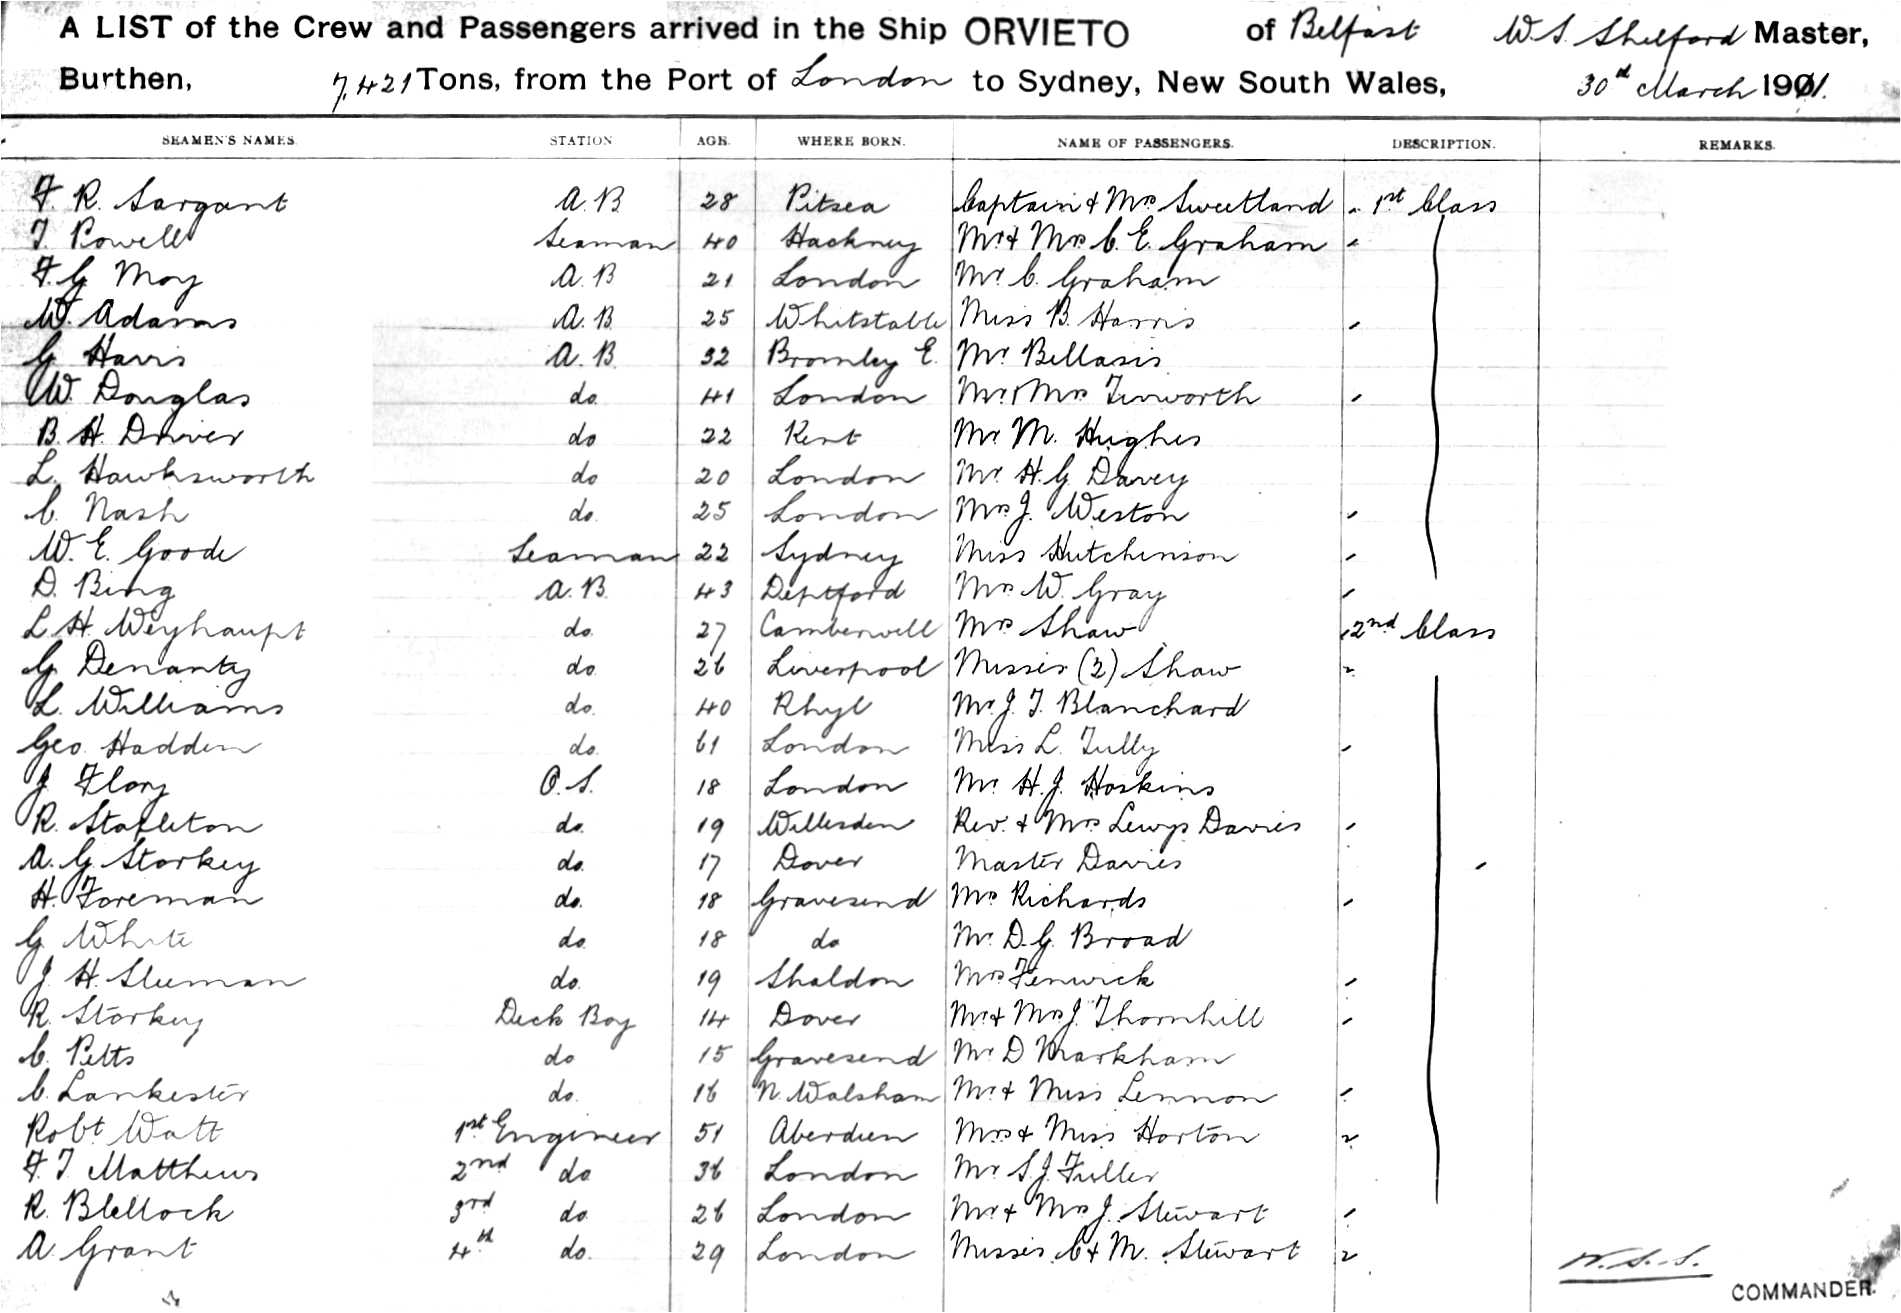 A LIST of the Crew and Passengers arrived in the Ship ORVIETO of Belfast W S. Shelford Master,
Burthen, 7,421 Tons, from the Port of London to Sydney, New South Wales, 30th March 1911.
SEAMEN'S NAMES. STATION AGE. WHERE BORN. NAME OF PASSENGERS. DESCRIPTION. REMARKS.
F. R. Sargant A.B 28 Pitsea Captain & Mrs Sweetland 1st Class
T. Powell Seaman 40 Hackney Mr & Mrs C. E. Graham
F. G Moy A.B 21 London Mr C. Graham
W. Adams A.B. 25 Whitstable Miss B. Harris
G Haris A.B. 32 Bromley E. Mr Bellasis
W. Douglas do. 41 London Mr & Mrs Tinworth
B. H. Driver do 22 Kent Mr M. Hughes
L. Hawksworth do 20 London Mr H. G. Davey
C. Nash do. 25 London Mrs J. Weston
W. E. Goode Seaman 22 Sydney Miss Hutchinson
D. Bing A.B. 43 Deptford Mrs W. Gray
L H. Weyhaupt do. 27 Camberwell Mrs Shaw 2nd Class
G Denanty do. 26 Liverpool Misses (2) Shaw
L. Williams do. 40 Rhyl Mr J. T. Blanchard
Geo. Hadden do. 61 London Miss L. Tully
J Flory O.S. 18 London Mr H. J. Hoskins
R. Stapleton do. 19 Willesden Rev. & Mrs Lewys Davies
A. G Storkey do. 17 Dover Master Davies
H. Foreman do. 18 Gravesend Mrs Richards
G White do. 18 do Mr D. G. Broad
J H. Sleeman do. 19 Shaldon Mrs Fenwick
R. Storkey Deck Boy 14 Dover Mr & Mrs J. Thornhill
C. Petts do 15 Gravesend Mr D Markham
C. Lankester do. 16 N. Walsham Mr & Miss Lennon
Robt Watt 1st Engineer 51 Aberdeen Mrs & Miss Horton
F. T Matthews 2nd do. 36 London Mr S. J. Fuller
R. Blellock 3rd do. 26 London Mr & Mrs J. Stewart
A. Grant 4th do. 29 London Misses C & M. Stewart
W. S. S.
COMMANDER.